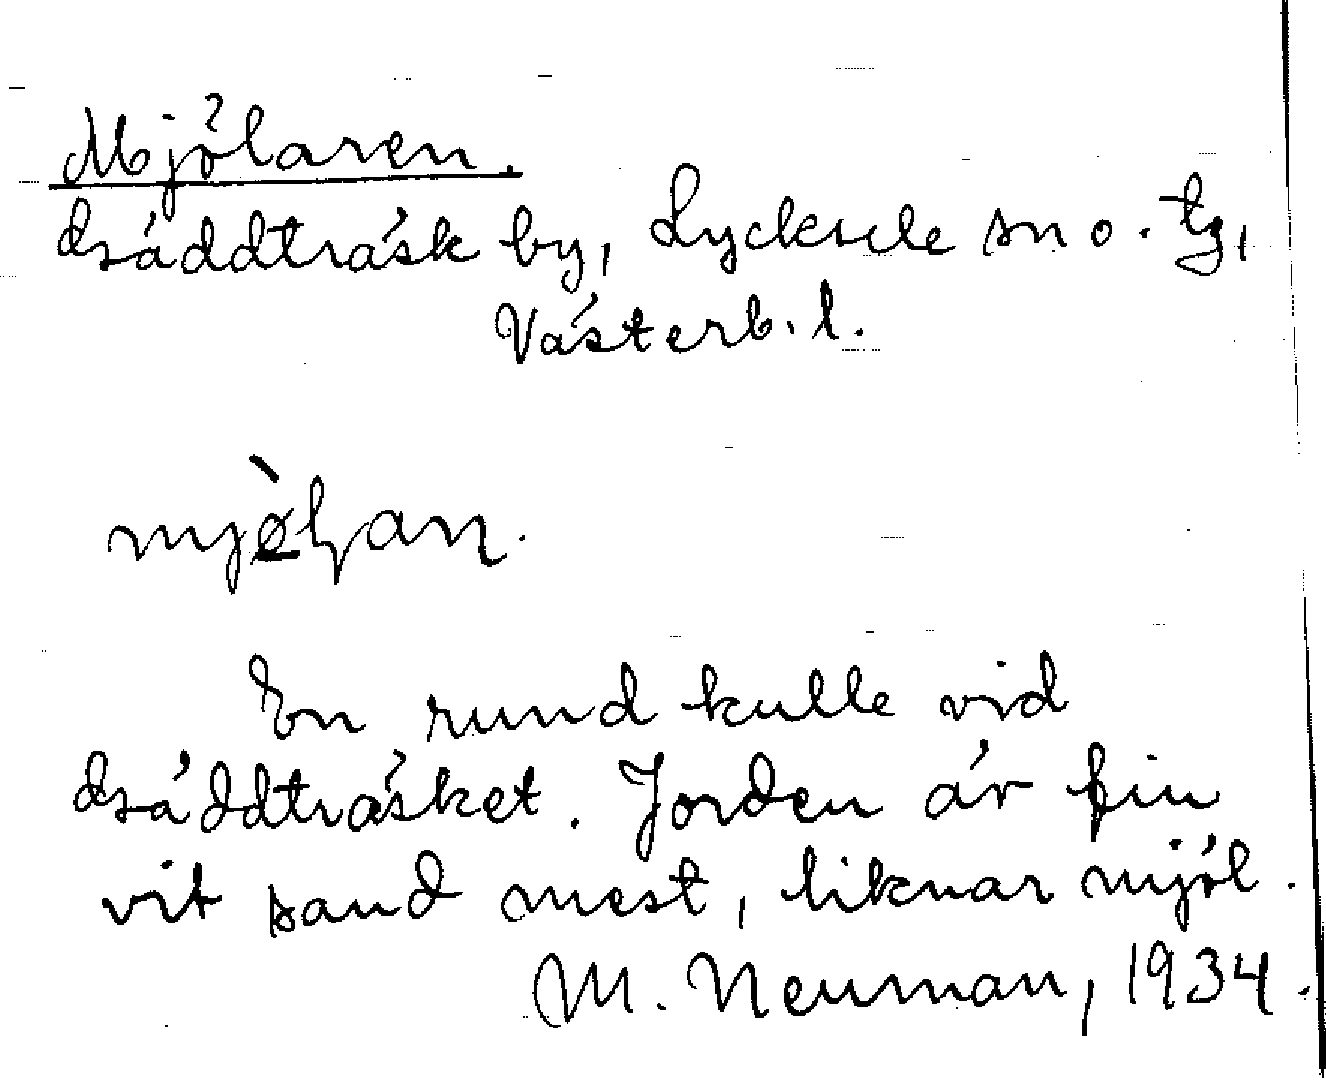 Mjölaren.
Gäddträsk by, Lycksele sn o. tg,
Västerb. l.
En rund kulle vid
Gäddträsket. Jorden är fin
vit sand mest, liknar mjöl.
M. Neuman, 1934.